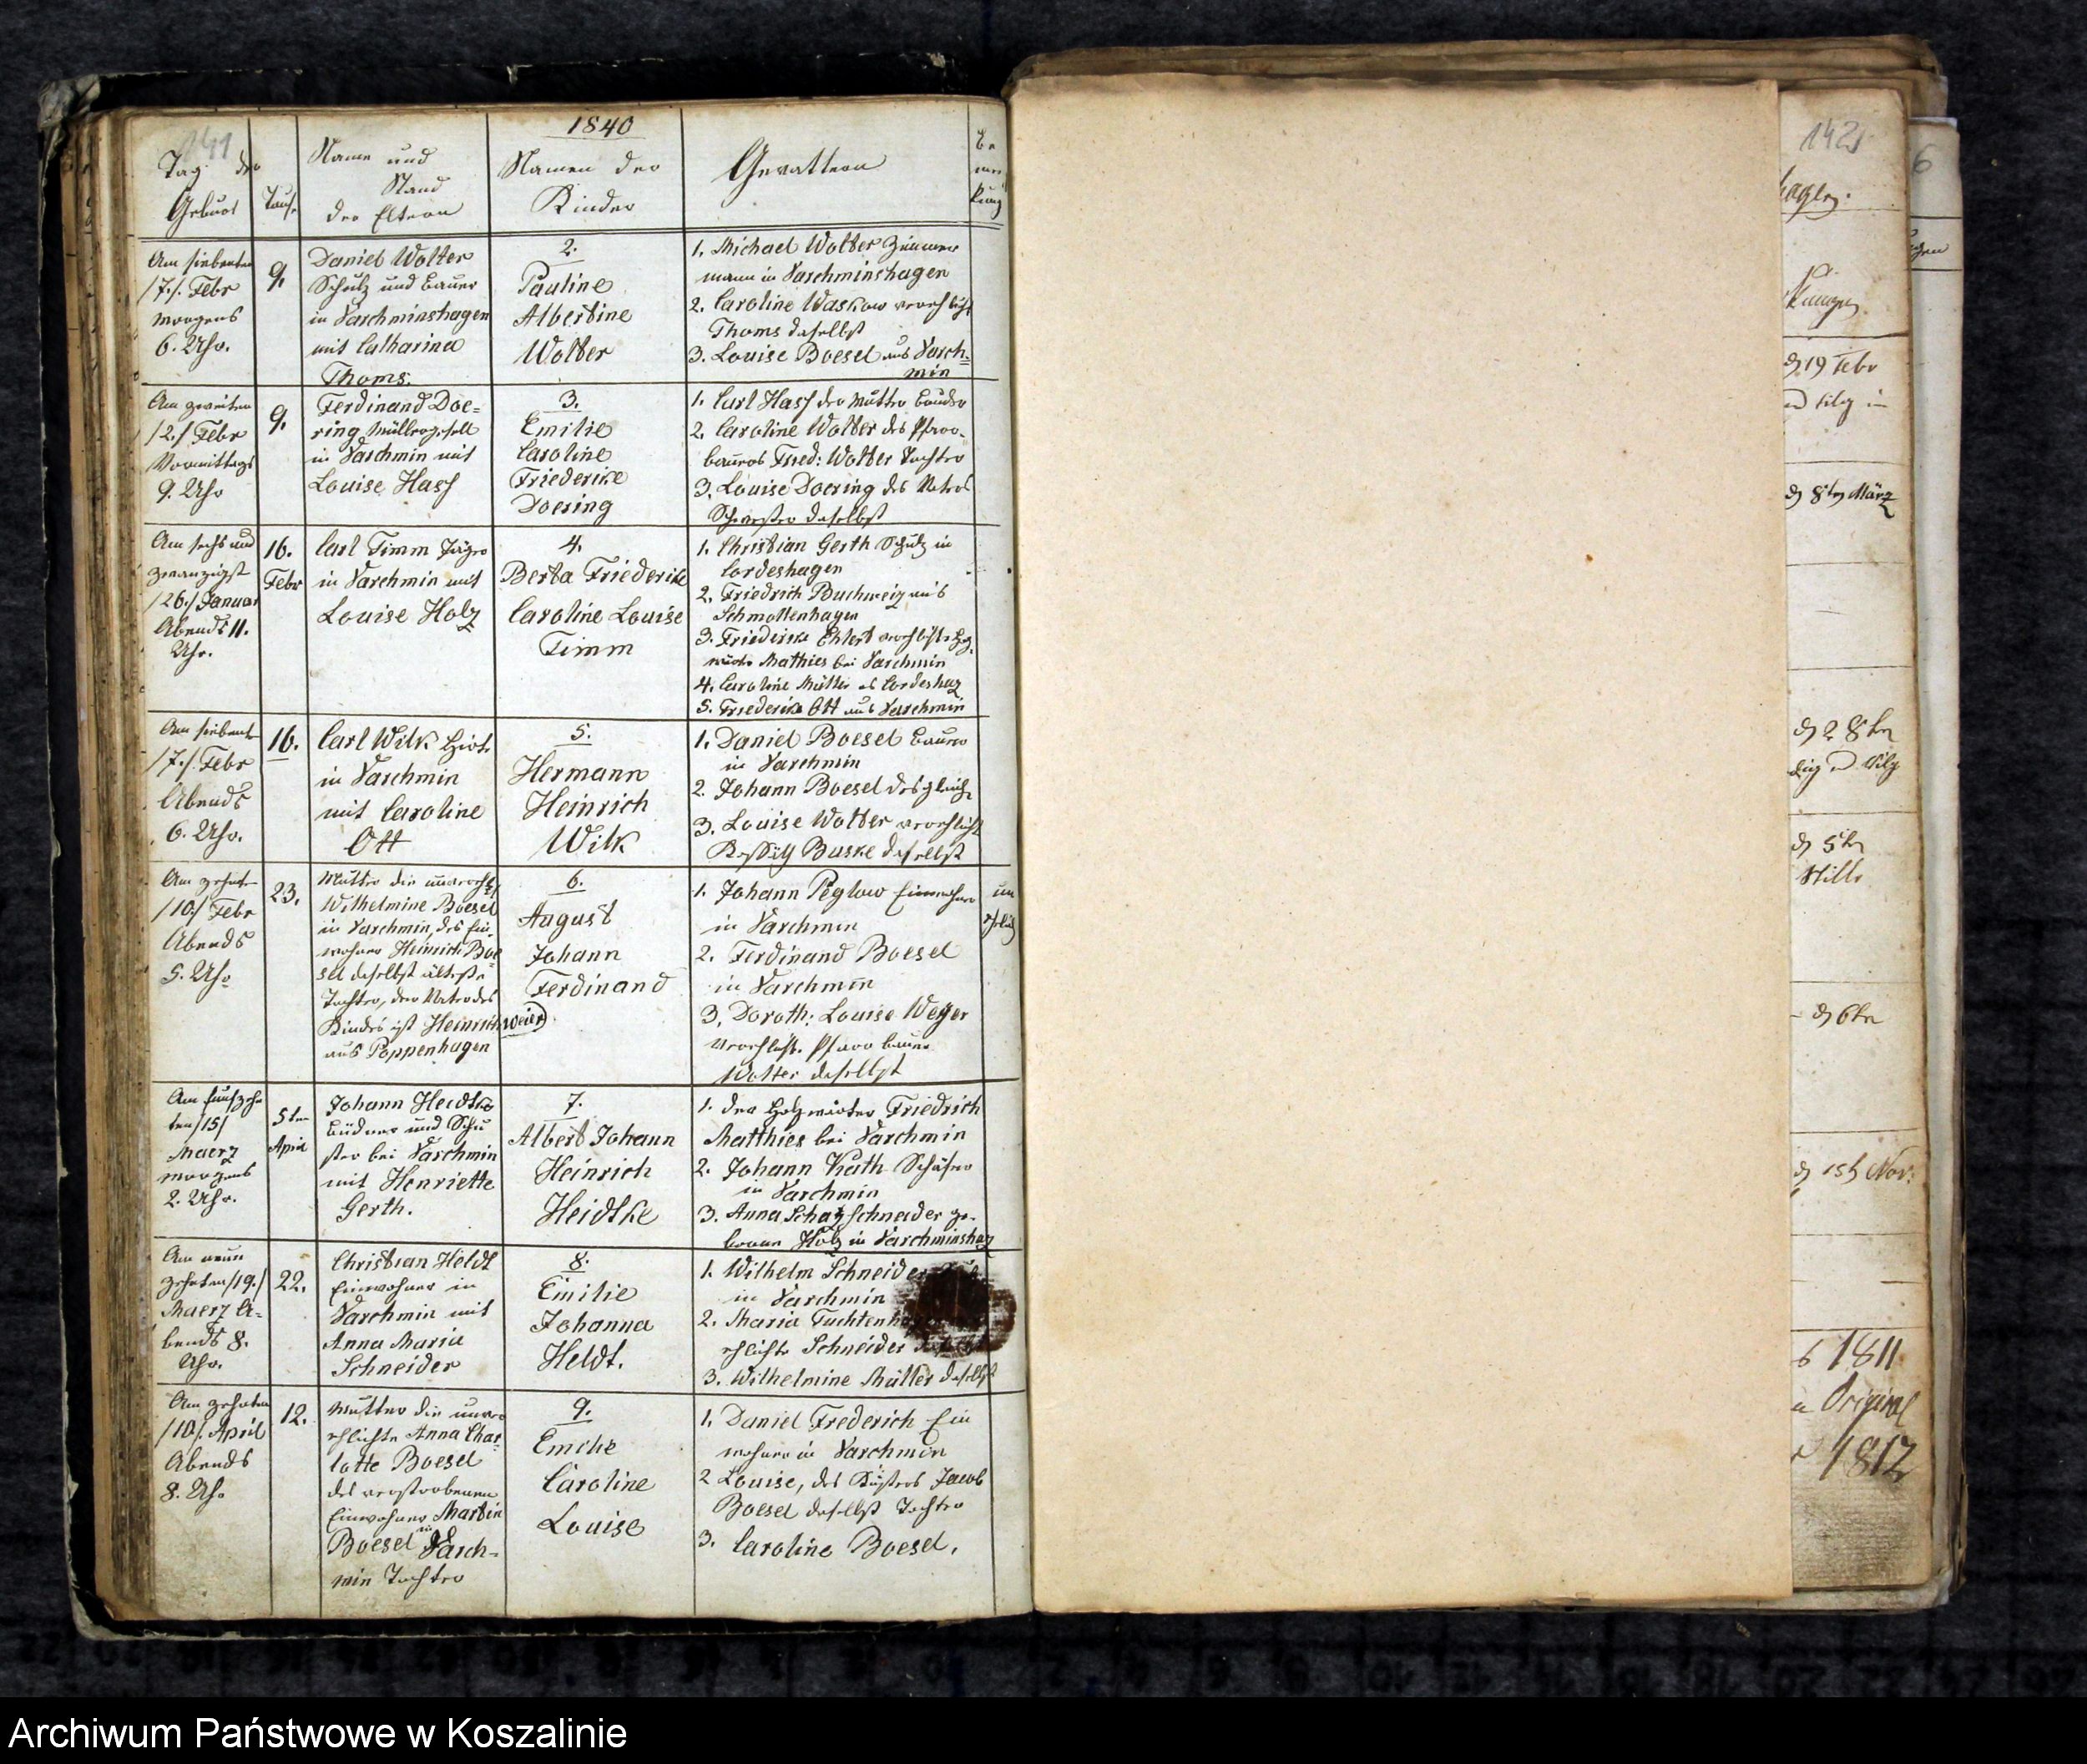 141
1840
Tag der
Geburt
Taufe
Name und
Stand
der Eltern
Namen der
Kinder
Gevattern
Be
mer
kung
Am siebenten
/7./ Febr
morgens
6. Uhr.
9.
Daniel Wolter
Schulz und Bauer
in Varchminshagen
mit Catharina
Thoms.
2.
Pauline
Albertine
Wolter
1. Michael Wolter Zimmer
mann in Varchminshagen
2. Caroline Waskow verehlicht
Thoms daselbst
3. Louise Boesel aus Varch=
min
Am zweiten
/2./ Febr
Vormittags
9. Uhr
9.
Ferdinand Doe=
ring Müllergesell
in Varchmin mit
Louise Hass
3.
Emilie
Caroline
Friederike
Doering
1. Carl Hass der Mutter Bruder
2. Caroline Wolter des Pfarr-
bauers Fried: Wolter Tochter
3. Louise Doering des Vaters
Schwester daselbst
Am sechs und
zwanzigst
/26./ Januar
Abends 11.
Uhr.
16.
Febr
Carl Timm Jäger
in Varchmin mit
Louise Holz
4.
Berta Friederike
Caroline Louise
Timm
1. Christian Gerth Schulz in
Cordeshagen
2. Friedrich Buchweiz aus
Schmollenhagen
3. Friederike Ehlert verehlichte Holz
wärter Mathies bei Varchmin
4. Caroline Müller Cordeshag
5. Friederike Ott aus Varchmin
Am siebent
/7./ Febr
Abends
6. Uhr.
16.
Carl Wilk Hirte
in Varchmin
mit Caroline
Ott
5.
Hermann
Heinrich
Wilk
1. Daniel Boesel Bauer
in Varchmin
2. Johann Boesel desgleich
3. Louise Wolter verehlicht
Buske daselbst
Am zehnten
/10./ Febr
Abends
5. Uhr
23.
Mutter die unverehl
Wilhelmine Boesel
in Varchmin, des Ein-
wohner Heinrich Boe
sel daselbst älteste
Tochter, der Vater des
Kindes ist Heinrich Weier
aus Poppenhagen
6.
August
Johann
Ferdinand
1. Johann Peglow Einwohner
in Varchmin
2. Ferdinand Boesel
in Varchmin
3. Doroth: Louise Weyer
verehlicht. Pfarr bauer
Wolter daselbst
un
ehelich
Am funfzehn
ten /15/
Maerz
morgens
2. Uhr.
5ten
April
Johann Heidtke
Büdner und Schu
ster bei Varchmin
mit Henriette
Gerth.
7.
Albert Johann
Heinrich
Heidtke
1. der Holzwärter Friedrich
Matthies bei Varchmin
2. Johann Rath Schäfer
in Varchmin
3. Anna Schatzschneider ge-
borene Holz in Varchminshag
Am neun
zehnten /19./
Maerz A-
bends 8.
Uhr.
22.
Christian Heldt
Einwohner in
Varchmin mit
Anna Maria
Schneider
8.
Emilie
Johanna
Heldt.
1. Wilhelm Schneider
in Varchmin
2. Maria
ehlichte Schneider
3. Wilhelmine Müller daselbst
Am zehnten
/10/. April
Abends
8. Uhr
12.
Mutter die unver
ehlichte Anna Char=
lotte Boesel
des verstorbenen
Einwohner Martin
Boesel in Varch=
min Tochter
9.
Emilie
Caroline
Louise
1. Daniel Frederich Ein
wohner in Varchmin
2 Louise, des Küsters Jacob
Boesel daselbst Tochter
3. Caroline Boesel.
142
hagen.
6
19 Febr
8ten März
28ten
5ten
Stille
6ten
15ten Nov:
1811
Original
1812
Archiwum Państwowe w Koszalinie